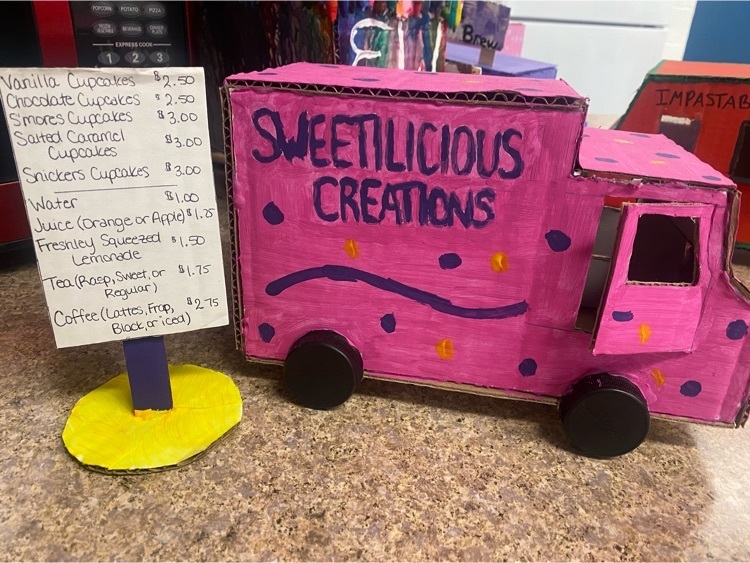 POPCORN POTATO PIZZA
BEVERAGE
EXPRESS COOK
1 2 3
Vanilla Cupcakes $2.50
Chocolate Cupcakes $2.50
S'mores Cupcakes $3.00
Salted Caramel
Cupcakes $3.00
Snickers Cupcakes $3.00
Water $1.00
Juice (Orange or Apple) $1.25
Freshley Squeezed
Lemonade $1.50
Tea (Rasp, Sweet, or
Regular) $1.75
Coffee (Lattes, Frap, $2.75
Black, or iced)
SWEETILICIOUS
CREATIONS
Brew
IMPASTAB